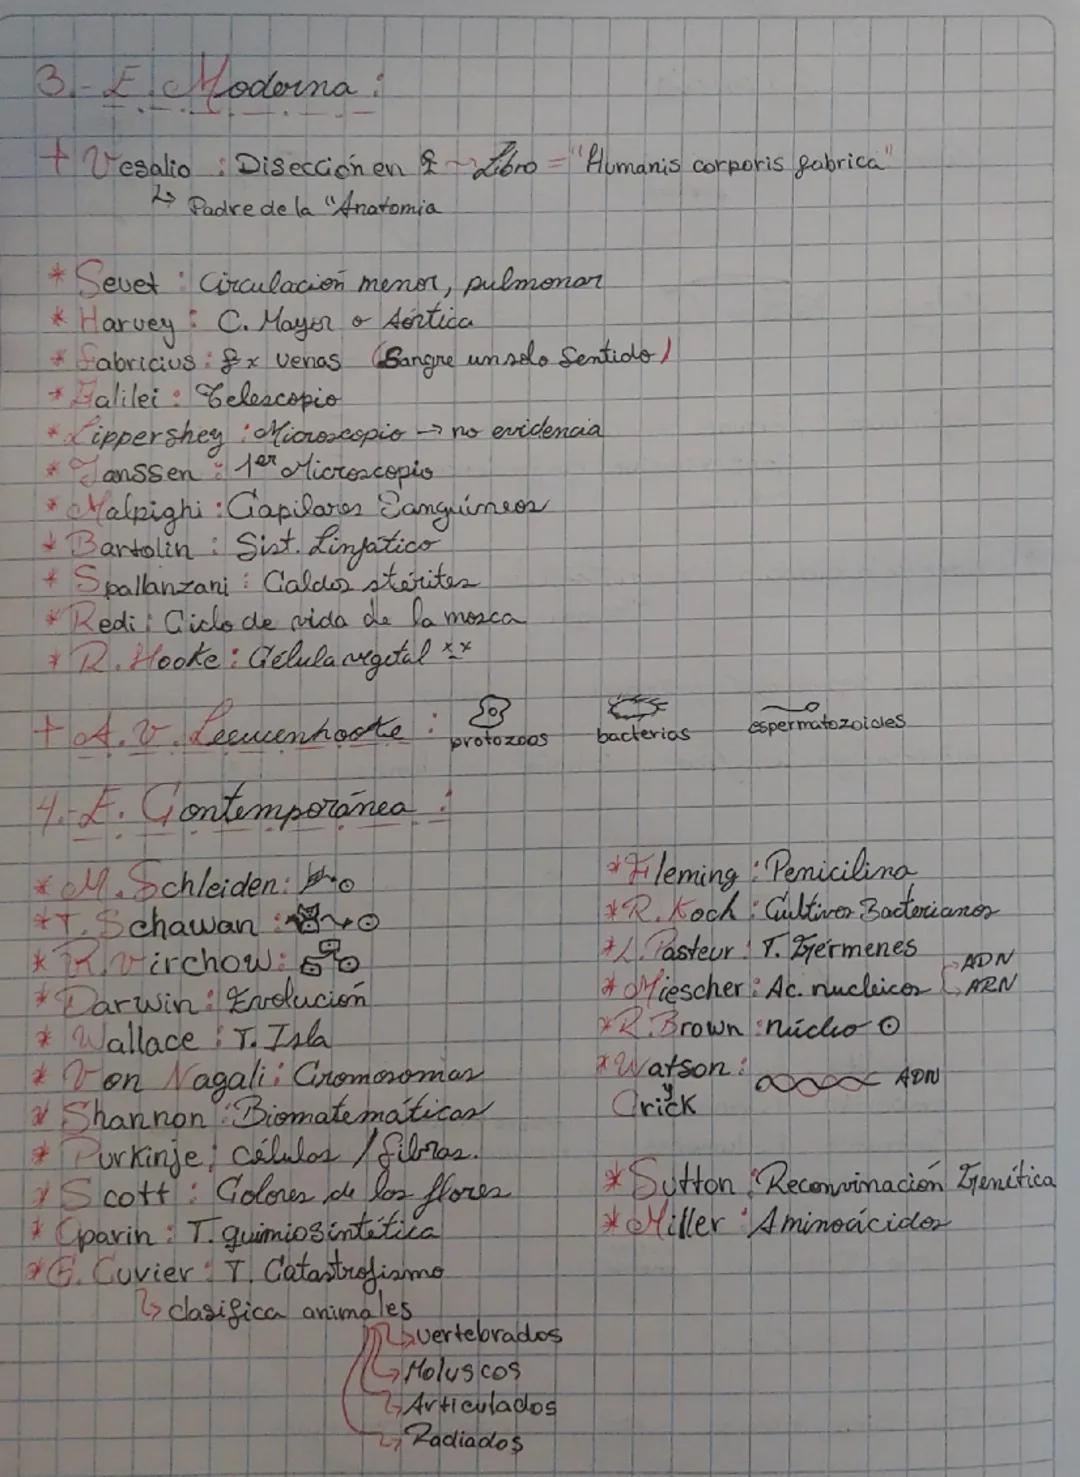 3.- E. Moderna :
+ Vesalio : Disección en ~ Libro = "Humanis corporis fabrica"
↳ Padre de la "Anatomia
* Sevet : Circulación menor, pulmonar
* Harvey : C. Mayor o Aórtica
* Fabricius : x venas (Sangre un solo Sentido)
* Galilei : Telescopio
* Lippershey : Microscopio → no evidencia
* Janssen : 1er Microscopio
* Malpighi : Capilares Sanguíneos
* Bartolin : Sist. Linfático
* Spallanzani : Caldos stériles
* Redi : Ciclo de vida de la mosca
* R. Hooke : Célula vegetal
+ A. V. Leeuwenhooke : protozoos bacterias espermatozoides
4.- E. Contemporánea :
* M. Schleiden :
* T. Schawan :
* R. Virchow :
* Darwin : Evolución
* Wallace : T. Isla
* Von Nagali : Cromosomas
* Shannon : Biomatemáticas
* Purkinje : células / fibras.
* Scott : Colores de las flores
* Oparin : T. quimiosintética
* G. Cuvier : T. Catastrofismo
↳ clasifica animales
↳ vertebrados
↳ Moluscos
↳ Articulados
↳ Radiados
* Fleming : Penicilina
* R. Koch : Cultivos Bacterianos
* L. Pasteur : T. Gérmenes
* Miescher : Ac. nucleicos → ADN
→ ARN
* R. Brown : núcleo
* Watson : ADN
y
Crick
* Sutton : Reconvinación Genética
* Miller : Aminoácidos